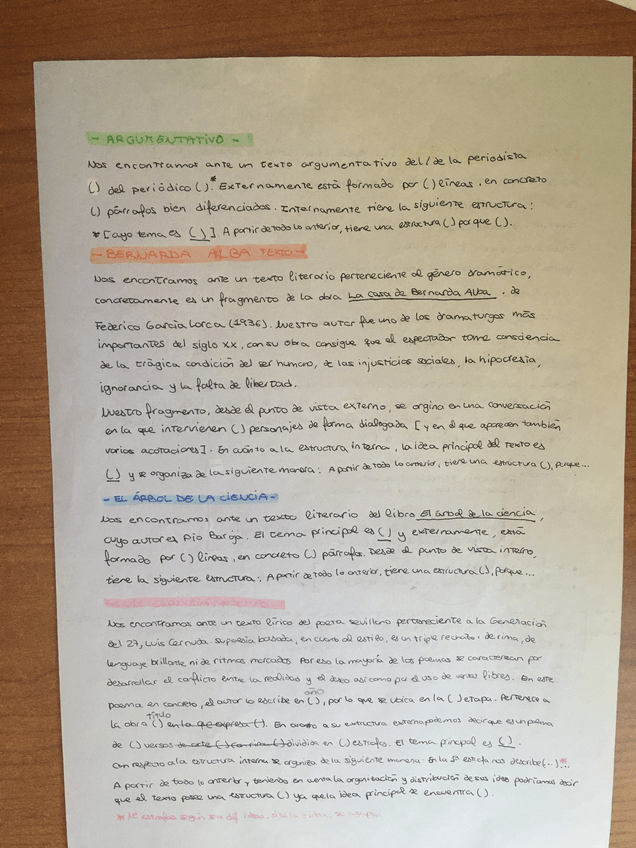 - ARGUMENTATIVO -
Nos encontramos ante un texto argumentativo del/de la periodista
() del periódico ().* Externamente está formado por () líneas, en concreto
() párrafos bien diferenciados. Internamente tiene la siguiente estructura:
* [cuyo tema es ( )] A partir de todo lo anterior, tiene una estructura () porque ().
- BERNARDA ALBA TEXTO -
Nos encontramos ante un texto literario perteneciente al género dramático,
concretamente es un fragmento de la obra La casa de Bernarda Alba, de
Federico García Lorca (1936). Nuestro autor fue uno de los dramaturgos más
importantes del siglo XX, con su obra consigue que el espectador tome consciencia
de la trágica condición del ser humano, de las injusticias sociales, la hipocresía,
ignorancia y la falta de libertad.
Nuestro fragmento, desde el punto de vista externo, se orgina en una conversación
en la que intervienen () personajes de forma dialogada [y en el que aparecen también
varias acotaciones]. En cuanto a la estructura interna, la idea principal del texto es
( ) y se organiza de la siguiente manera: A partir de todo lo anterior, tiene una estructura (), porque...
- EL ÁRBOL DE LA CIENCIA -
Nos encontramos ante un texto literario del libro El árbol de la ciencia,
cuyo autor es Pío Baroja. El tema principal es ( ) y externamente, está
formado por () líneas, en concreto () párrafos. Desde el punto de vista interno,
tiene la siguiente estructura: A partir de todo lo anterior, tiene una estructura (), porque...
Nos encontramos ante un texto lírico del poeta sevillano perteneciente a la Generación
del 27, Luis Cernuda. Su poesía basada, en cuanto al estilo, es un triple rechazo: de rima, de
lenguaje brillante ni de ritmos marcados. Por eso la mayoría de los poemas se caracterizan por
desarrollar el conflicto entre la realidad y el deseo así como por el uso de versos libres. En este
poema en concreto, el autor lo escribe en () año, por lo que se ubica en la () etapa. Pertenece a
la obra () título en la que expresa (). En cuanto a su estructura externa podemos decir que es un poema
de () versos de arte () con rima () dividido en () estrofas. El tema principal es ( ).
Con respecto a la estructura interna se organiza de la siguiente manera: En la 1ª estrofa nos describe (...)...*
A partir de todo lo anterior y teniendo en cuenta la organización y distribución de sus ideas podríamos decir
que el texto posee una estructura () ya que la idea principal se encuentra ().